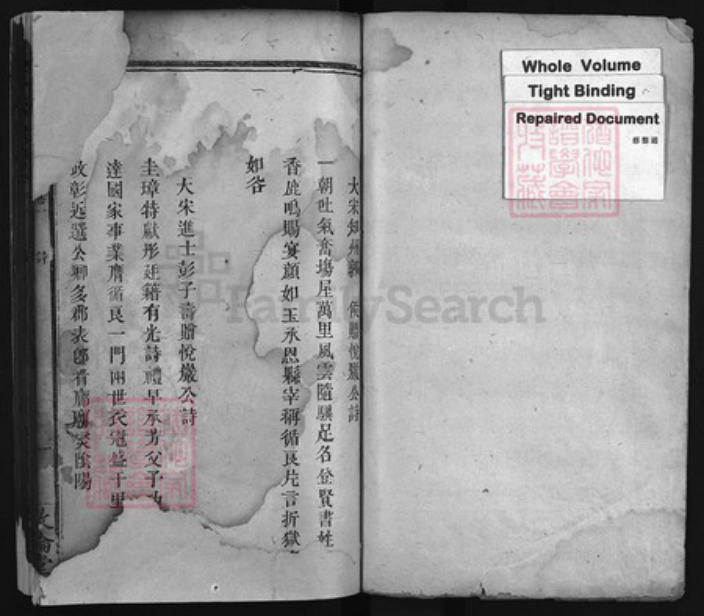 大宋知州郭 侯贈悅巖公詩
一朝吐氣奮場屋萬里風雲隨驥足名登賢書姓
香鹿鳴賜宴顏如玉承恩縣宰稱循良片言折獄
如谷
大宋進士彭子壽贈悅巖公詩
圭璋特獻彤廷籍有光詩禮早承芳父子
達國家事業膺循良一門兩世衣冠盛千里
政彰近選公卿多郡表
陰陽
敦倫堂
Whole Volume
Tight Binding
Repaired Document
FamilySearch